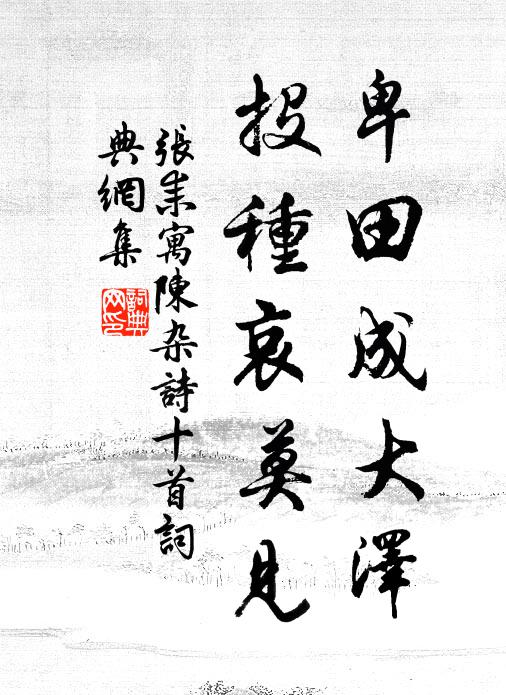 卑田成大澤
投種哀莫見
張耒寓陳杂詩十首詞
典網集
詞典网印